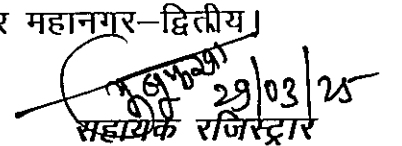 र महानगर–द्वितीय।
29/03/25
सहायक रजिस्ट्रार